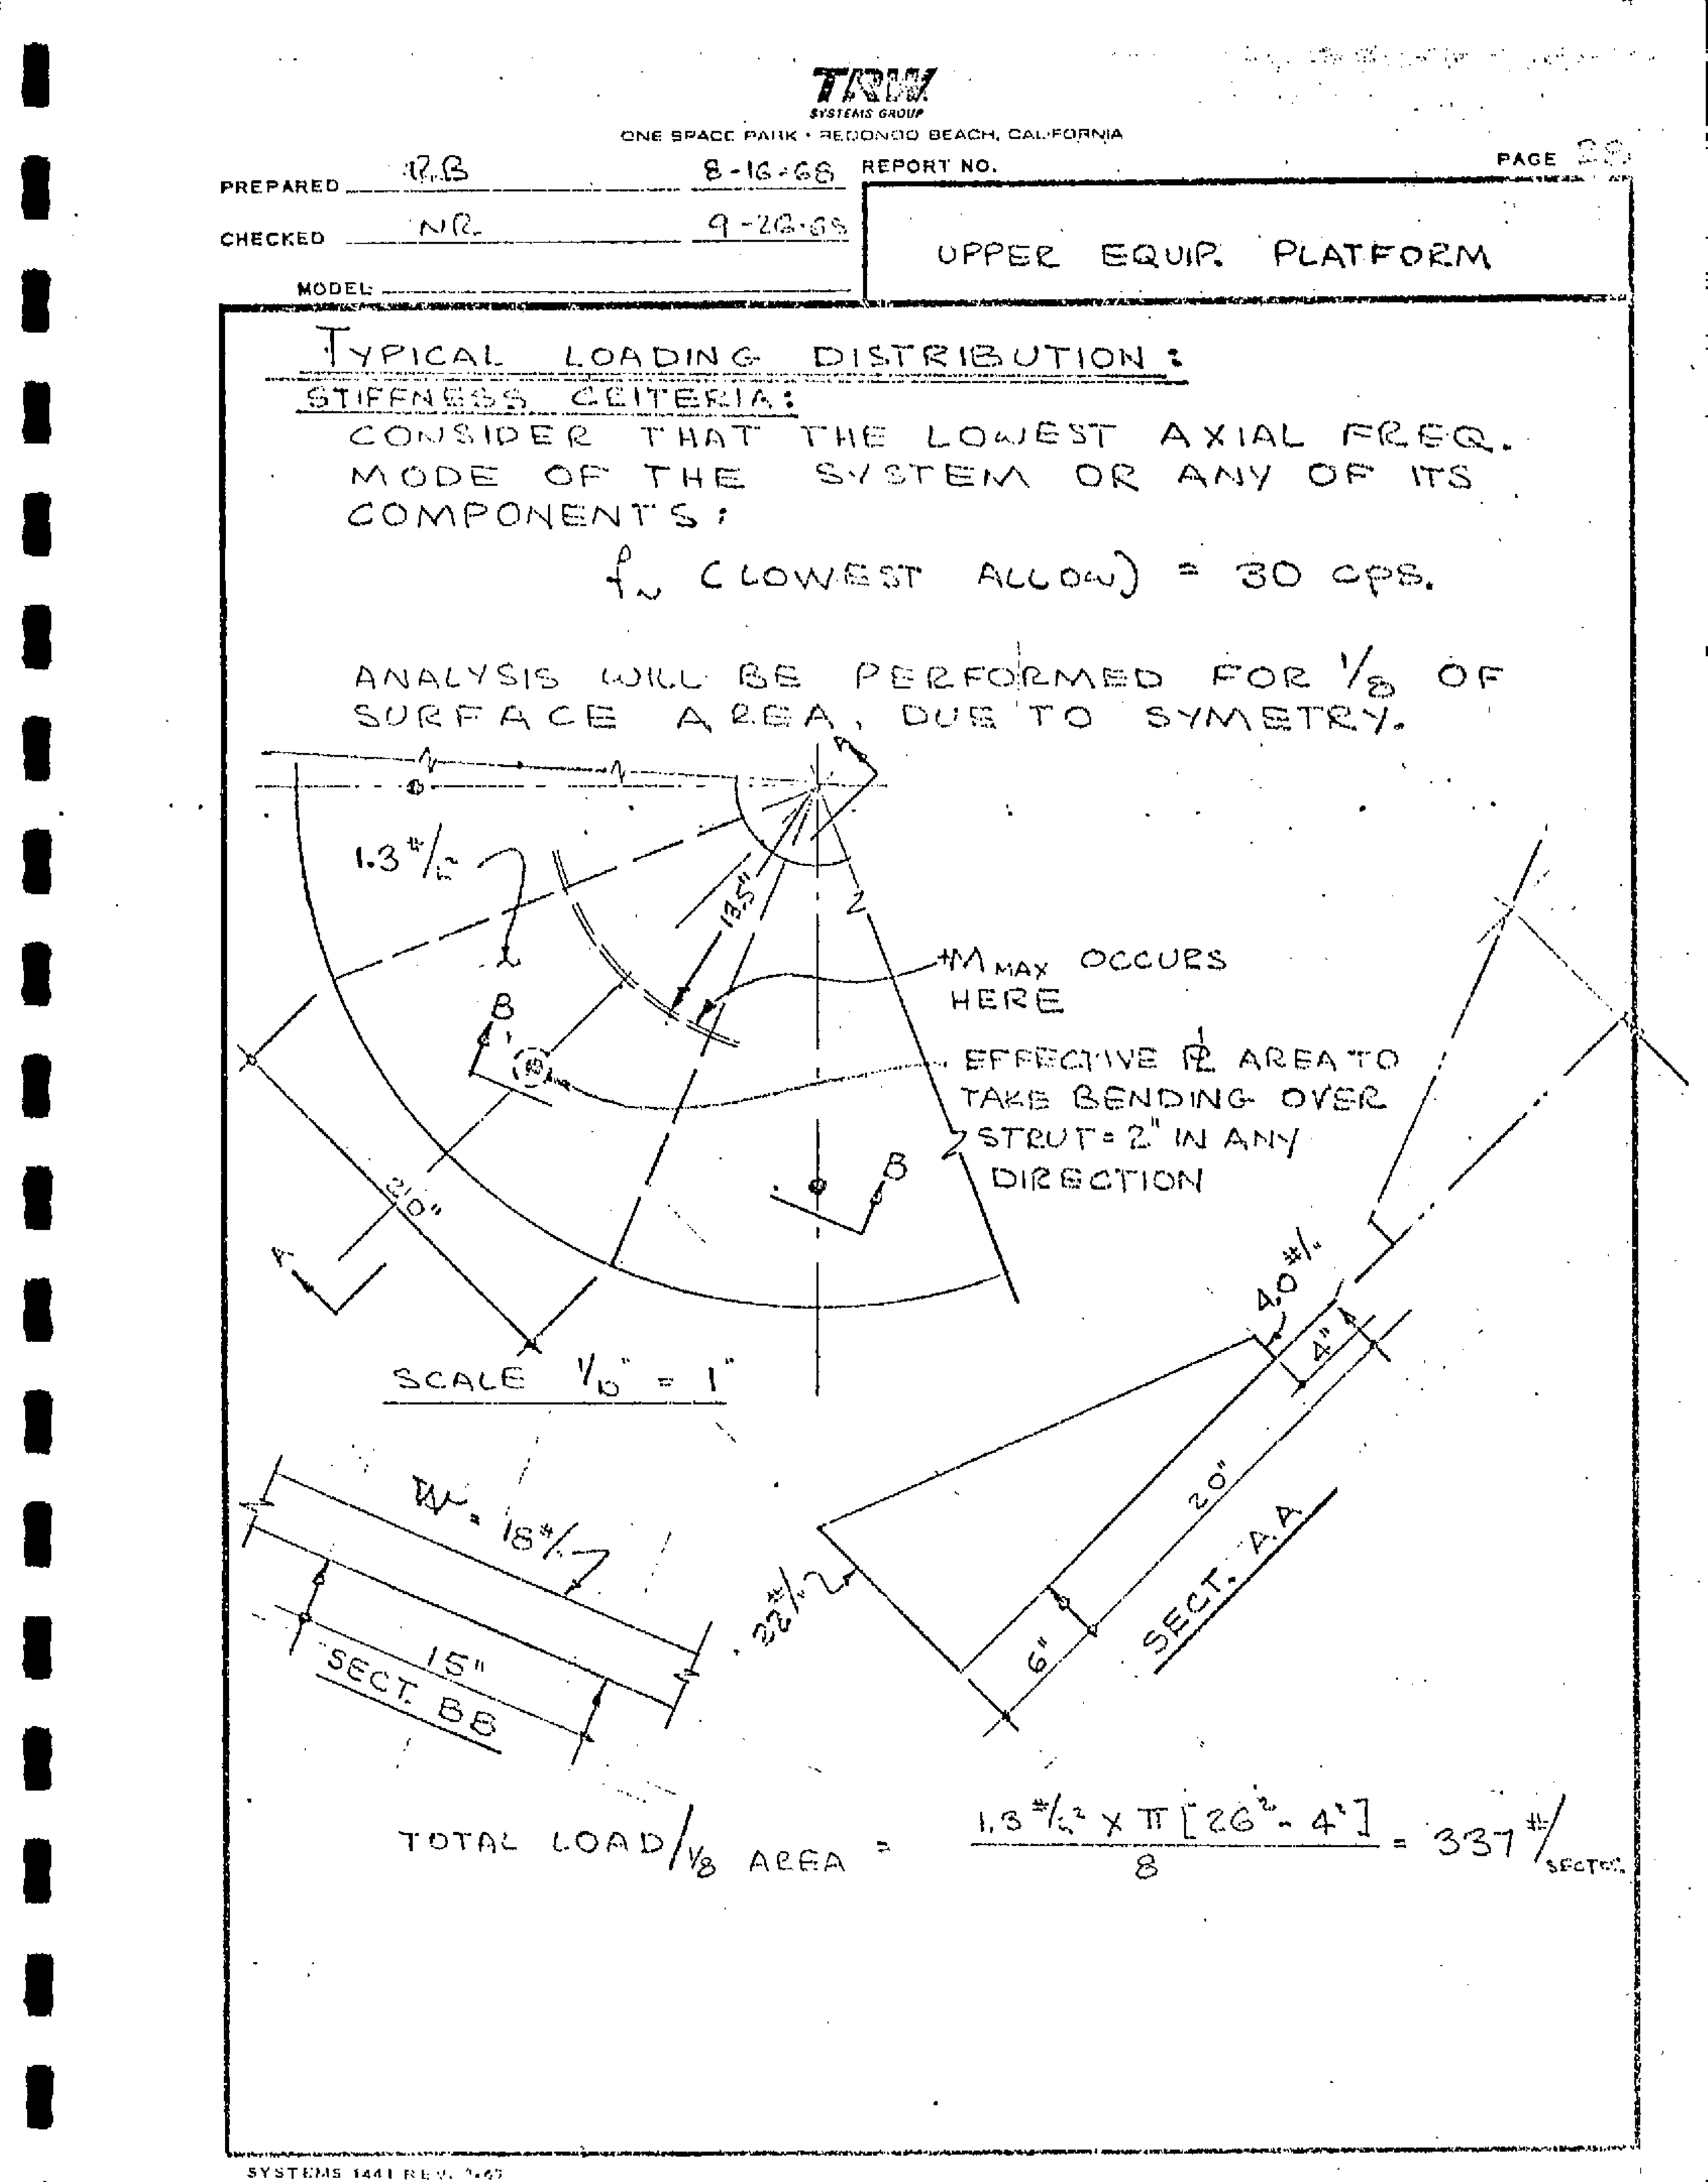 TRW
SYSTEMS GROUP
ONE SPACE PARK • REDONDO BEACH, CALIFORNIA
PREPARED R.B 8-16-68 REPORT NO. PAGE 28
CHECKED NR. 9-26-68
MODEL
UPPER EQUIP. PLATFORM
TYPICAL LOADING DISTRIBUTION:
STIFFNESS CRITERIA:
CONSIDER THAT THE LOWEST AXIAL FREQ.
MODE OF THE SYSTEM OR ANY OF ITS
COMPONENTS:
fN (LOWEST ALLOW) = 30 cps.
ANALYSIS WILL BE PERFORMED FOR 1/8 OF
SURFACE AREA, DUE TO SYMETRY.
A
1.3 #/□"
13.5"
+M MAX OCCURS
HERE
B
EFFECTIVE PL AREA TO
TAKE BENDING OVER
STRUT = 2" IN ANY
DIRECTION
B
20"
A
SCALE 1/10" = 1"
4.0 #/"
4"
20"
SECT. A.A
22 #/"
6"
W = 18 #/"
15"
SECT. BB
TOTAL LOAD/1/8 AREA = 1.3 #/in² X π [26² - 4²] / 8 = 337 #/SECTOR
SYSTEMS 1441 REV.